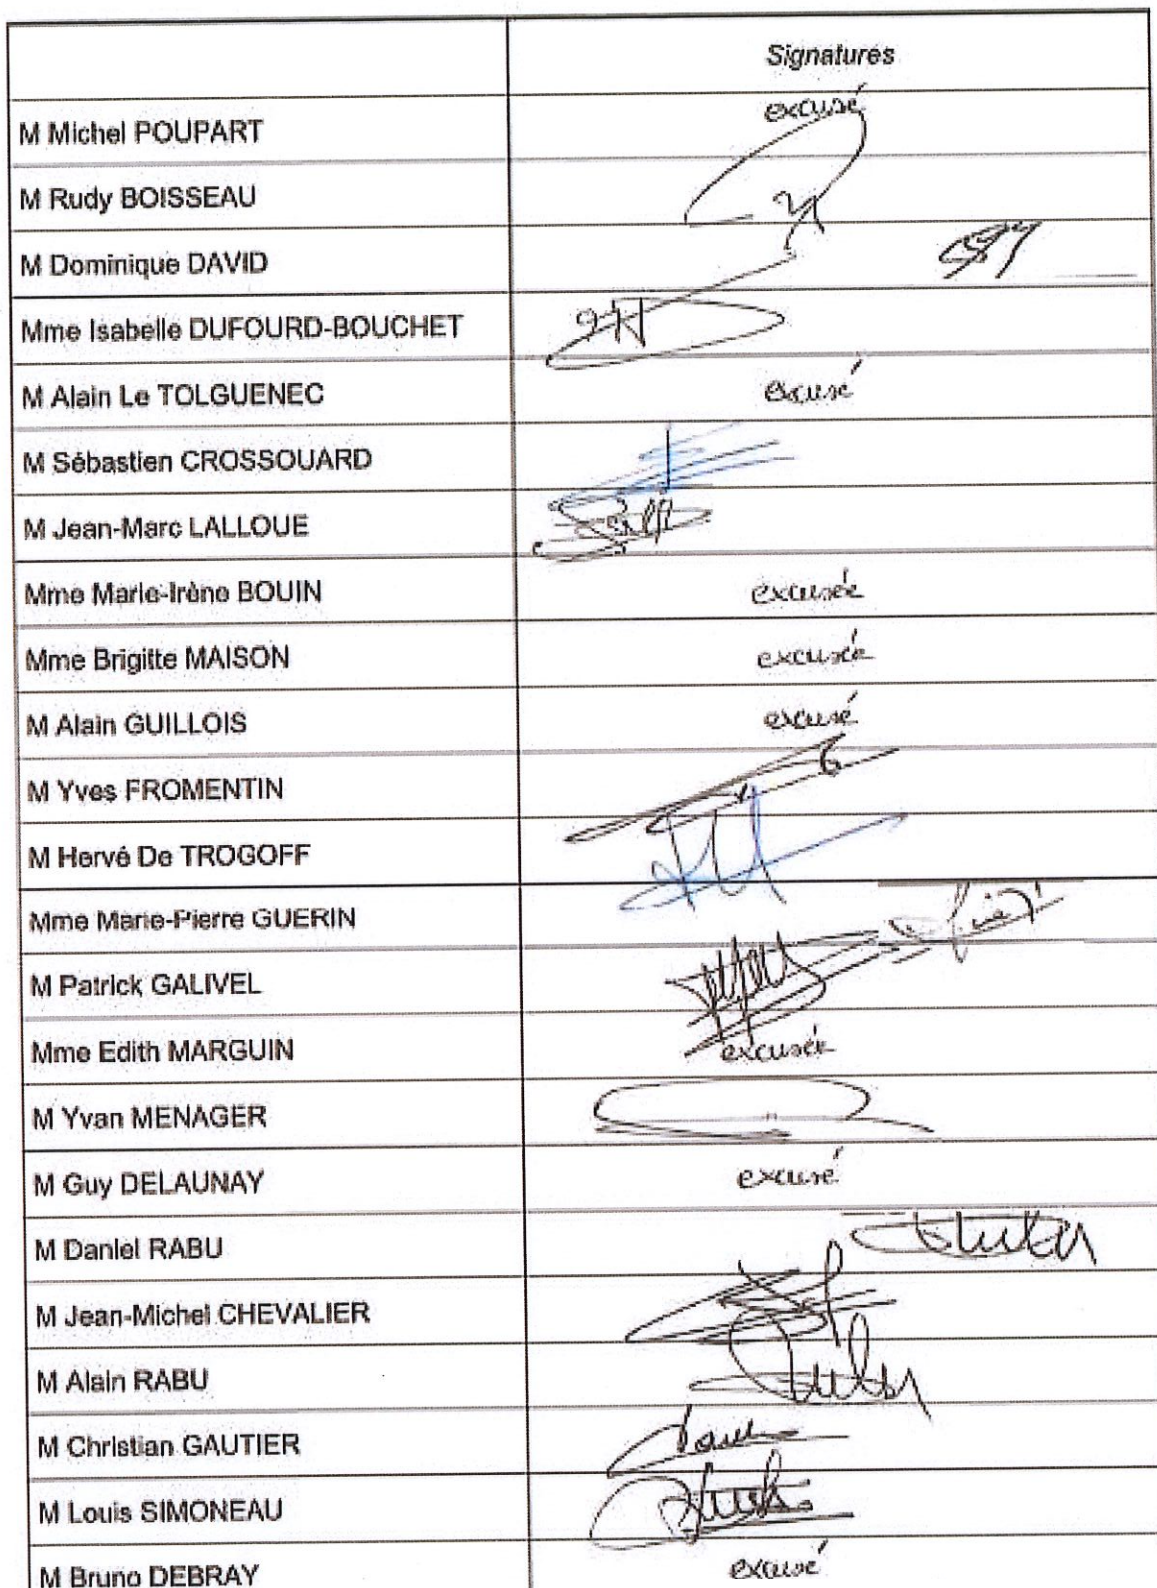 Signatures
M Michel POUPART excusé
M Rudy BOISSEAU
M Dominique DAVID
Mme Isabelle DUFOURD-BOUCHET
M Alain Le TOLGUENEC excusé
M Sébastien CROSSOUARD
M Jean-Marc LALLOUE
Mme Marie-Irène BOUIN excusée
Mme Brigitte MAISON excusée
M Alain GUILLOIS excusé
M Yves FROMENTIN
M Hervé De TROGOFF
Mme Marie-Pierre GUERIN
M Patrick GALIVEL
Mme Edith MARGUIN excusée
M Yvan MENAGER
M Guy DELAUNAY excusé
M Daniel RABU
M Jean-Michel CHEVALIER
M Alain RABU
M Christian GAUTIER
M Louis SIMONEAU
M Bruno DEBRAY excusé